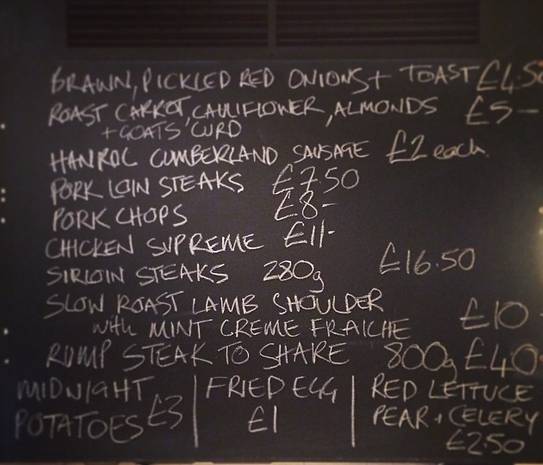 BRAWN, PICKLED RED ONIONS + TOAST £4.50
ROAST CARROT, CAULIFLOWER, ALMONDS £5-
+ GOATS' CURD
HANROC CUMBERLAND SAUSAGE £2 each
PORK LOIN STEAKS £7.50
PORK CHOPS £8-
CHICKEN SUPREME £11-
SIRLOIN STEAKS 280g £16.50
SLOW ROAST LAMB SHOULDER £10
with MINT CREME FRAICHE
RUMP STEAK TO SHARE 800g £40
MIDNIGHT
POTATOES £3
FRIED EGG
£1
RED LETTUCE
PEAR + CELERY
£2.50